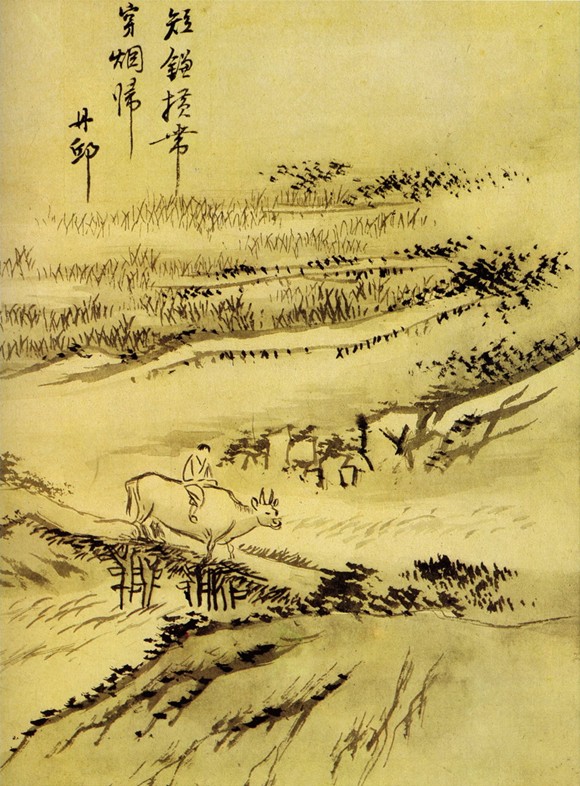 短鎌横帶
穿烟歸
丹邱